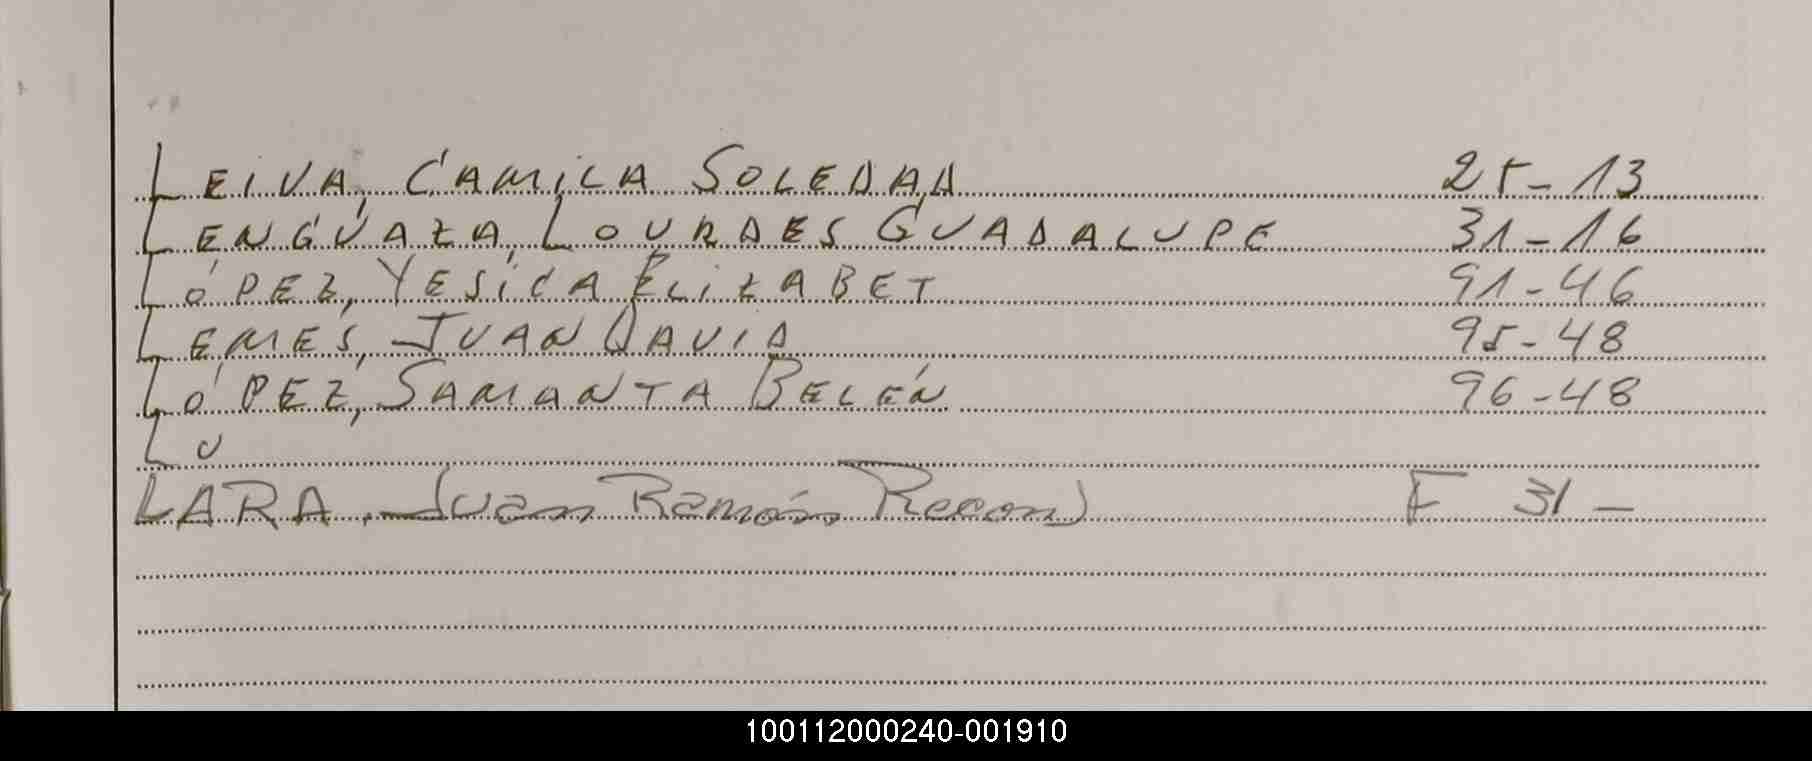 LEIVA, CAMILA SOLEDAD 25-13
LENGUAZA, LOURDES GUADALUPE 31-16
LÓPEZ, YESICA ELIZABET 91-46
LEMES, JUAN DAVID 95-48
LÓPEZ, SAMANTA BELÉN 96-48
LU
LARA, Juan Ramón F 31-
100112000240-001910